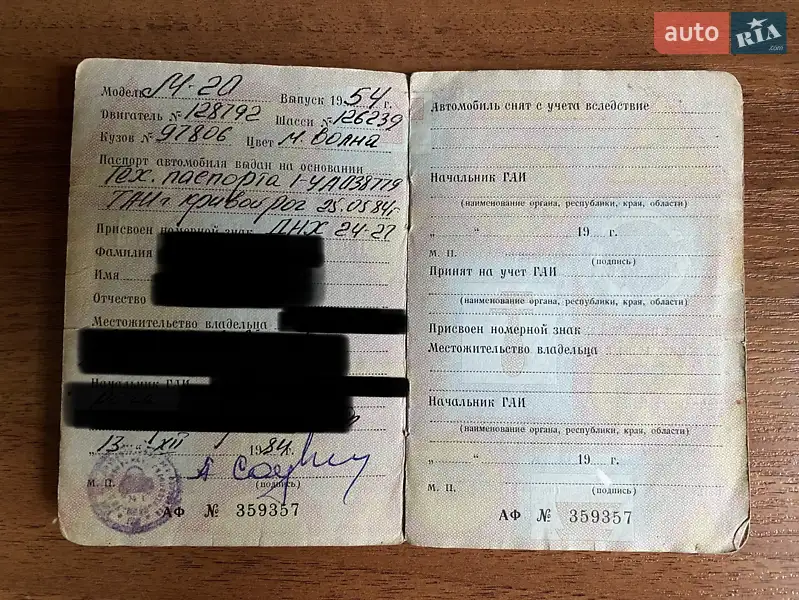 auto RIA .com
Модель М-20 Выпуск 1954 г.
Двигатель № 128792 Шасси № 126239
Кузов № 97806 Цвет М. Волна
Паспорт автомобиля выдан на основании
Тех. паспорта 1-УА038719
ГАИ г Кривой рог 25.05.84г
Присвоен номерной знак ДНХ 24-27
Фамилия
Имя
Отчество
Местожительство владельца
Начальник ГАИ
„13 “ XII 1984 г.
М. П. (подпись)
АФ № 359357
Автомобиль снят с учета вследствие
Начальник ГАИ
(наименование органа, республики, края, области)
„ “ 19 г.
М. П. (подпись)
Принят на учет ГАИ
(наименование органа, республики, края, области)
Присвоен номерной знак
Местожительство владельца
Начальник ГАИ
(наименование органа, республики, края, области)
„ “ 19 г.
М. П. (подпись)
АФ № 359357